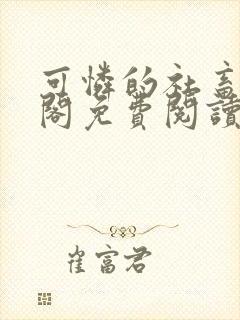 可憐的社畜
閣免費閱讀
崔富君